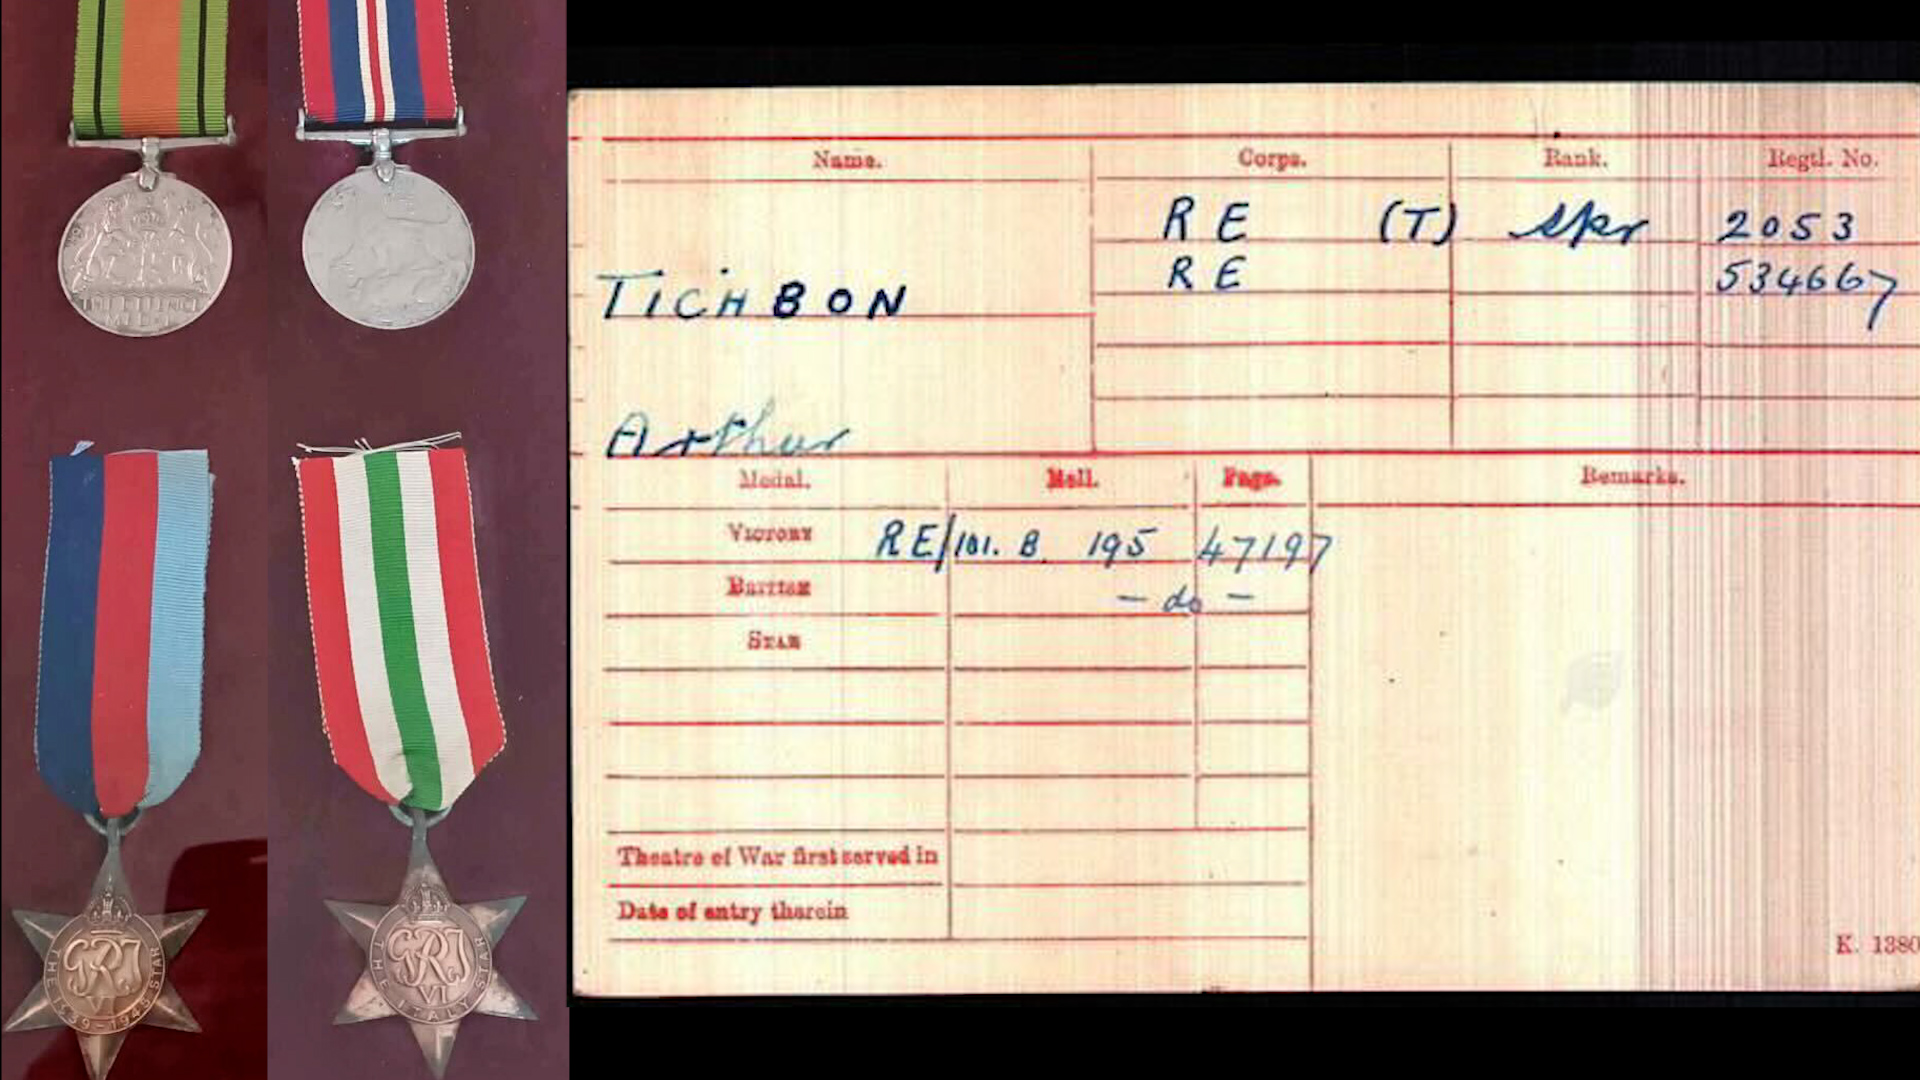 THE DEFENCE
MEDAL
GRI
VI
THE 1939-1945 STAR
GRI
VI
THE ITALY STAR
Name. Corps. Rank. Regtl. No.
R E (T) Spr 2053
R E 534667
TICHBON
Arthur
Medal. Roll. Page. Remarks.
VICTORY RE/101. B. 195 47197
BRITISH - do -
STAR
Theatre of War first served in
Date of entry therein
K. 1380